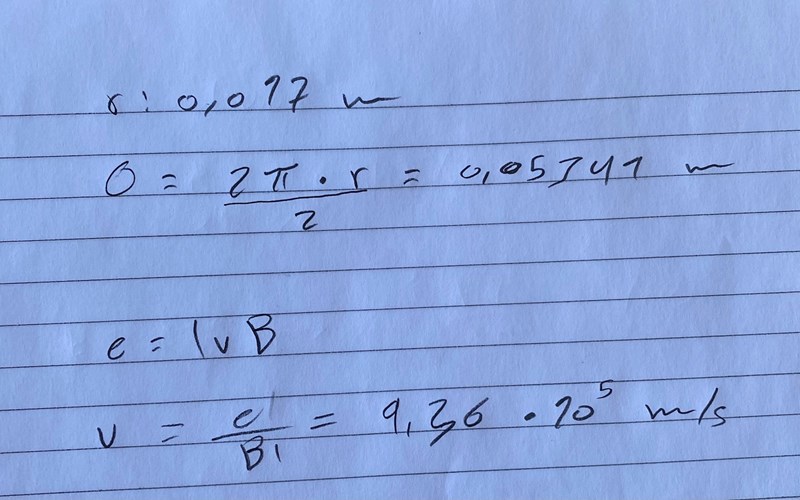 r: 0,017 m
O = 2π · r / 2 = 0,05341 m
e = lvB
v = e / Bl = 9,36 · 10⁵ m/s